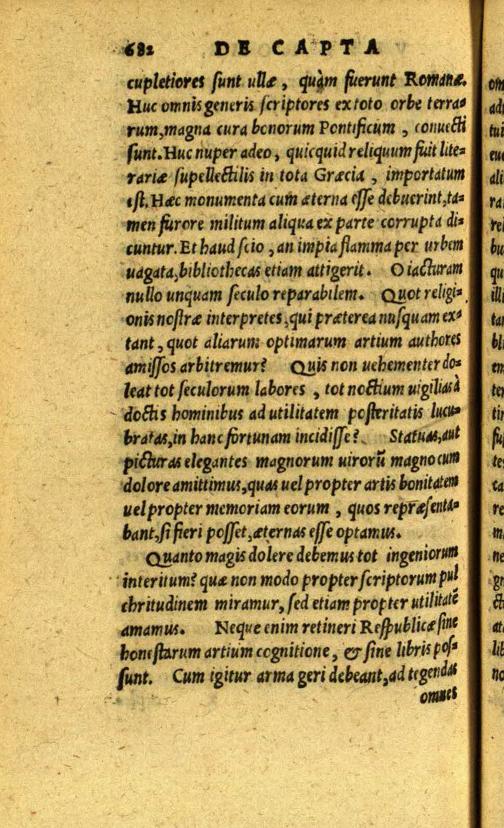 682 DE CAPTA
cupletiores sunt ullæ, quàm fuerunt Romanæ.
Huc omnis generis scriptores ex toto orbe terra=
rum, magna cura bonorum Pontificum, conuecti
sunt. Huc nuper adeo, quicquid reliquum fuit lite=
rariæ supellectilis in tota Græcia, importatum
est. Hæc monumenta cum æterna esse debuerint, ta=
men furore militum aliqua ex parte corrupta di=
cuntur. Et haud scio, an impia flamma per urbem
uagata, bibliothecas etiam attigerit. O iacturam
nullo unquam seculo reparabilem. Quot religi=
onis nostræ interpretes, qui præterea nusquam ex=
tant, quot aliarum optimarum artium authores
amissos arbitremur? Quis non uehementer do=
leat tot seculorum labores, tot noctium uigilias à
doctis hominibus ad utilitatem posteritatis lucu=
bratas, in hanc fortunam incidisse? Statuas, aut
picturas elegantes magnorum uirorũ magno cum
dolore amittimus, quas uel propter artis bonitatem
uel propter memoriam eorum, quos repræsenta=
bant, si fieri posset, æternas esse optamus.
Quanto magis dolere debemus tot ingeniorum
interitum? quæ non modo propter scriptorum pul
chritudinem miramur, sed etiam propter utilitatē
amamus. Neque enim retineri Respublicæ sine
honestarum artium cognitione, & sine libris pos=
sunt. Cum igitur arma geri debeant, ad tegendas
omnes